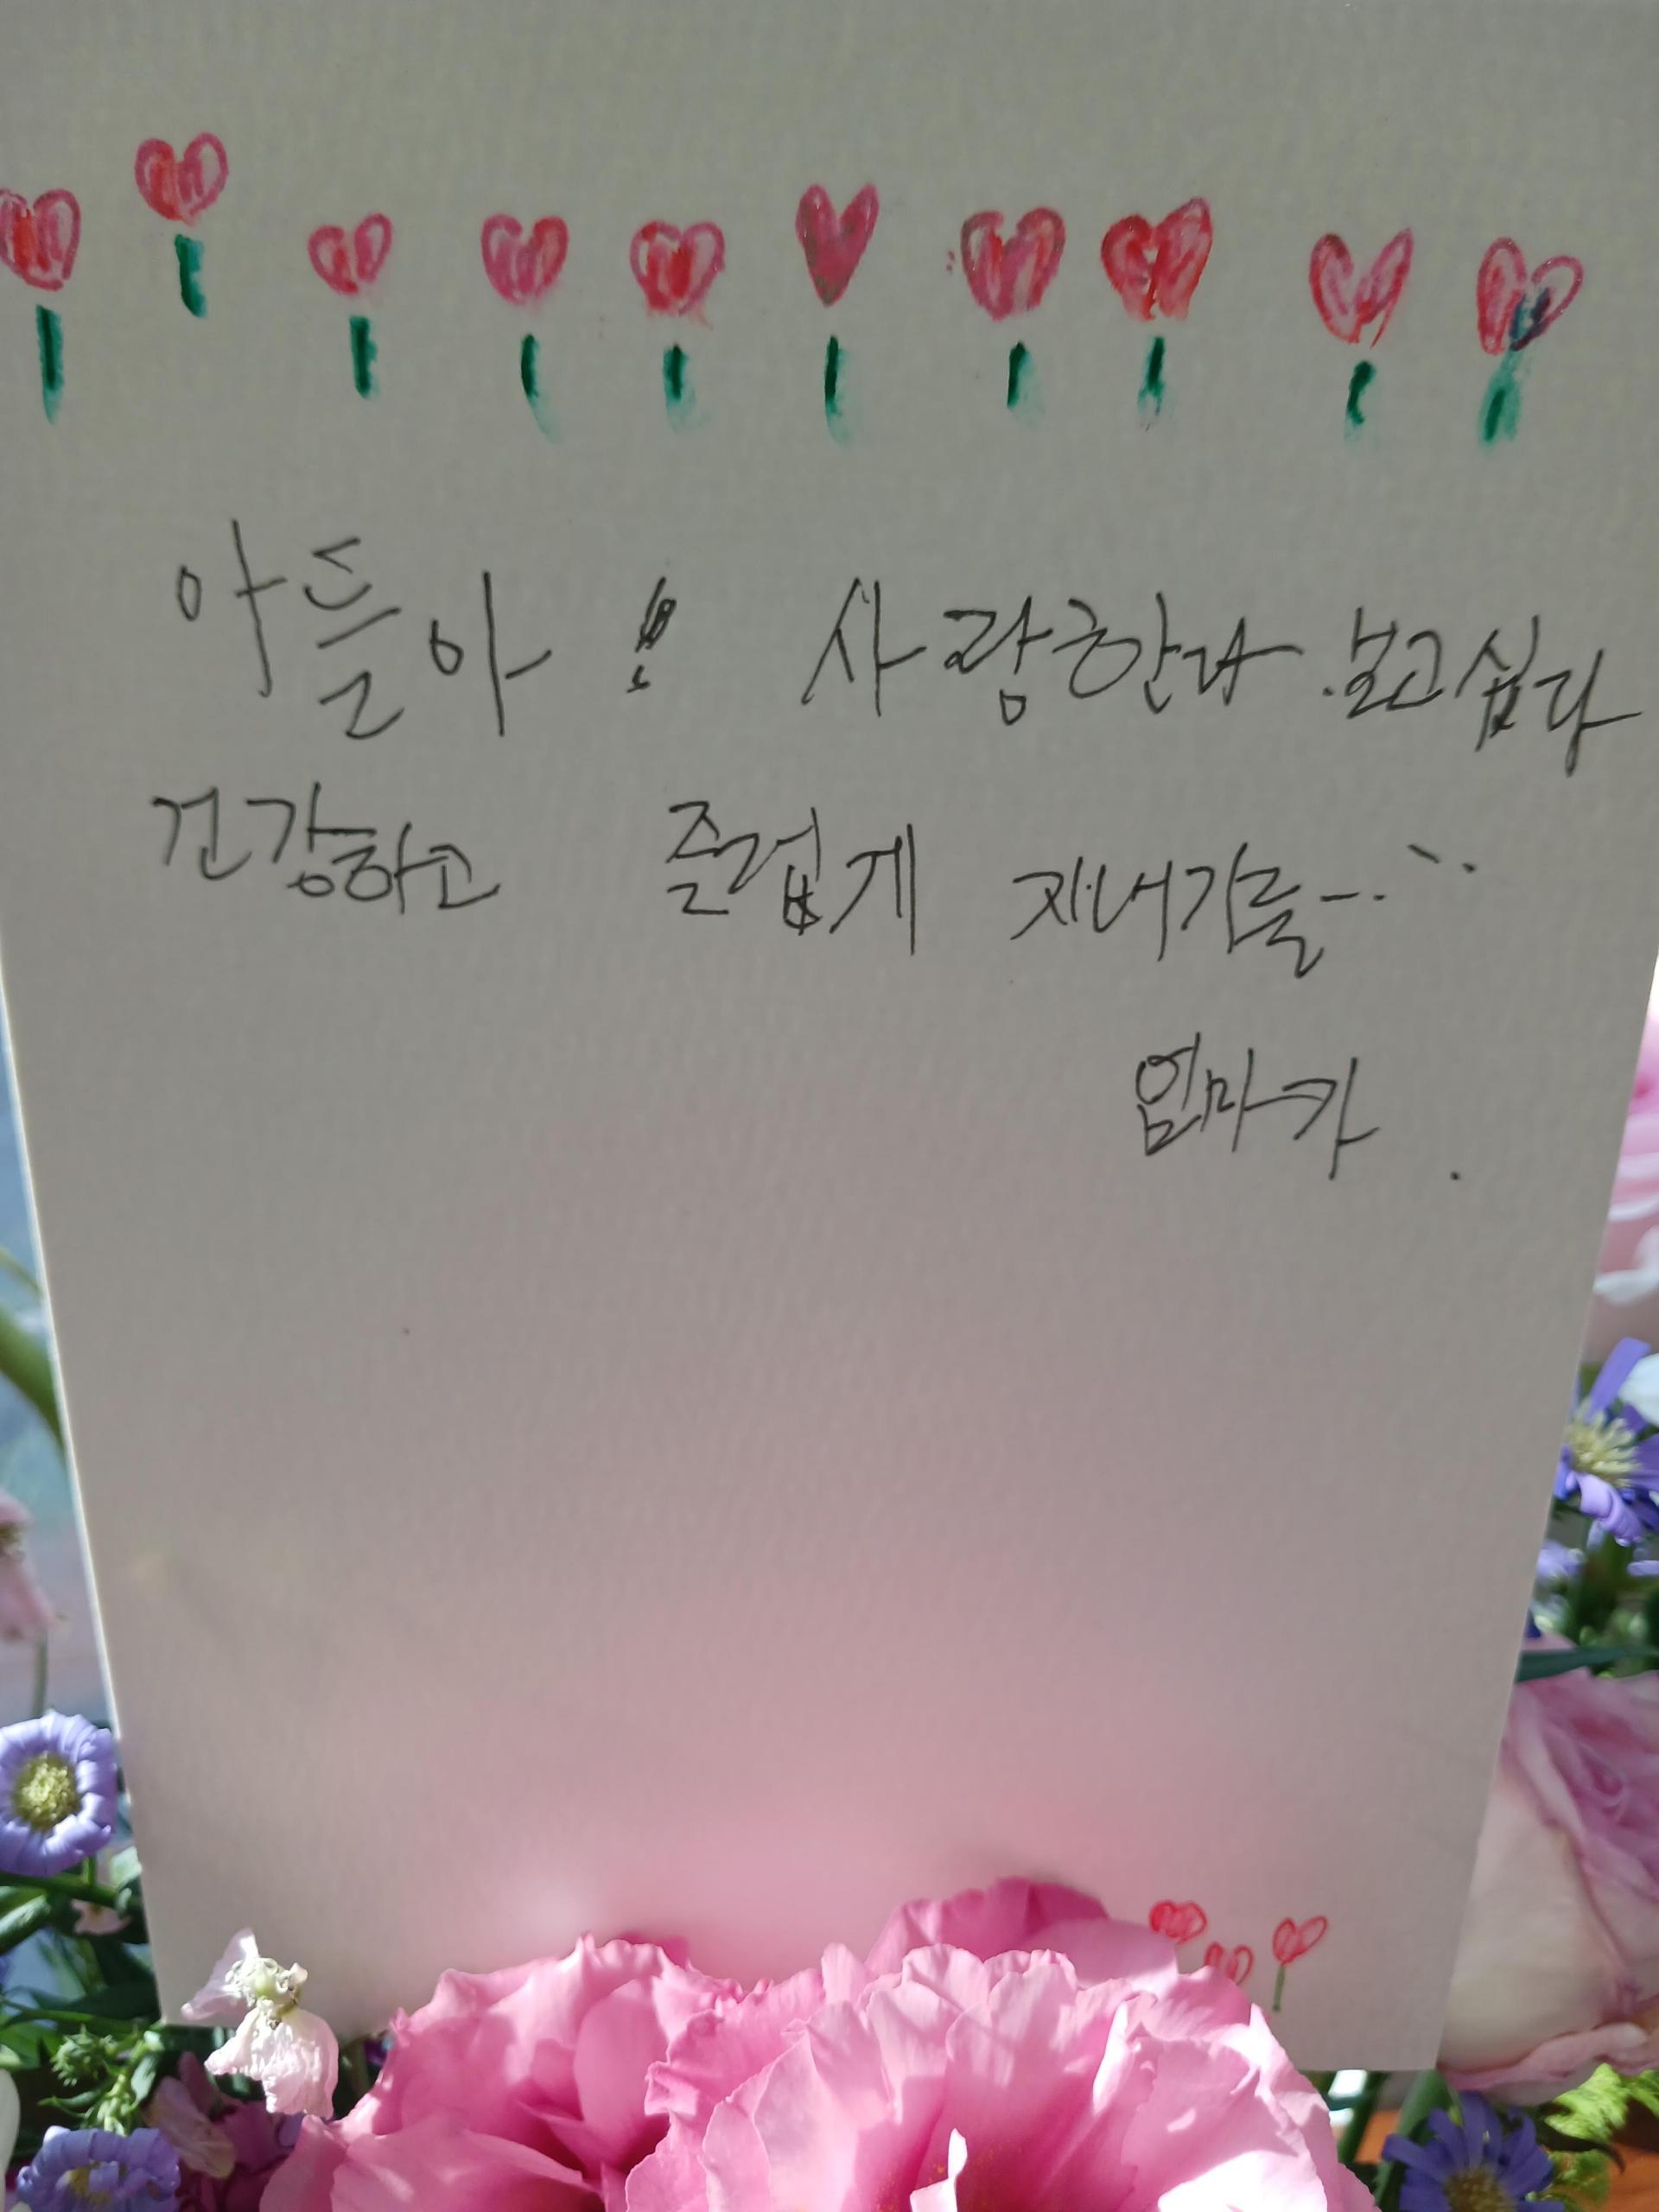 아들아! 사랑한다. 보고싶다
건강하고 즐겁게 지내기를-..``
엄마가.